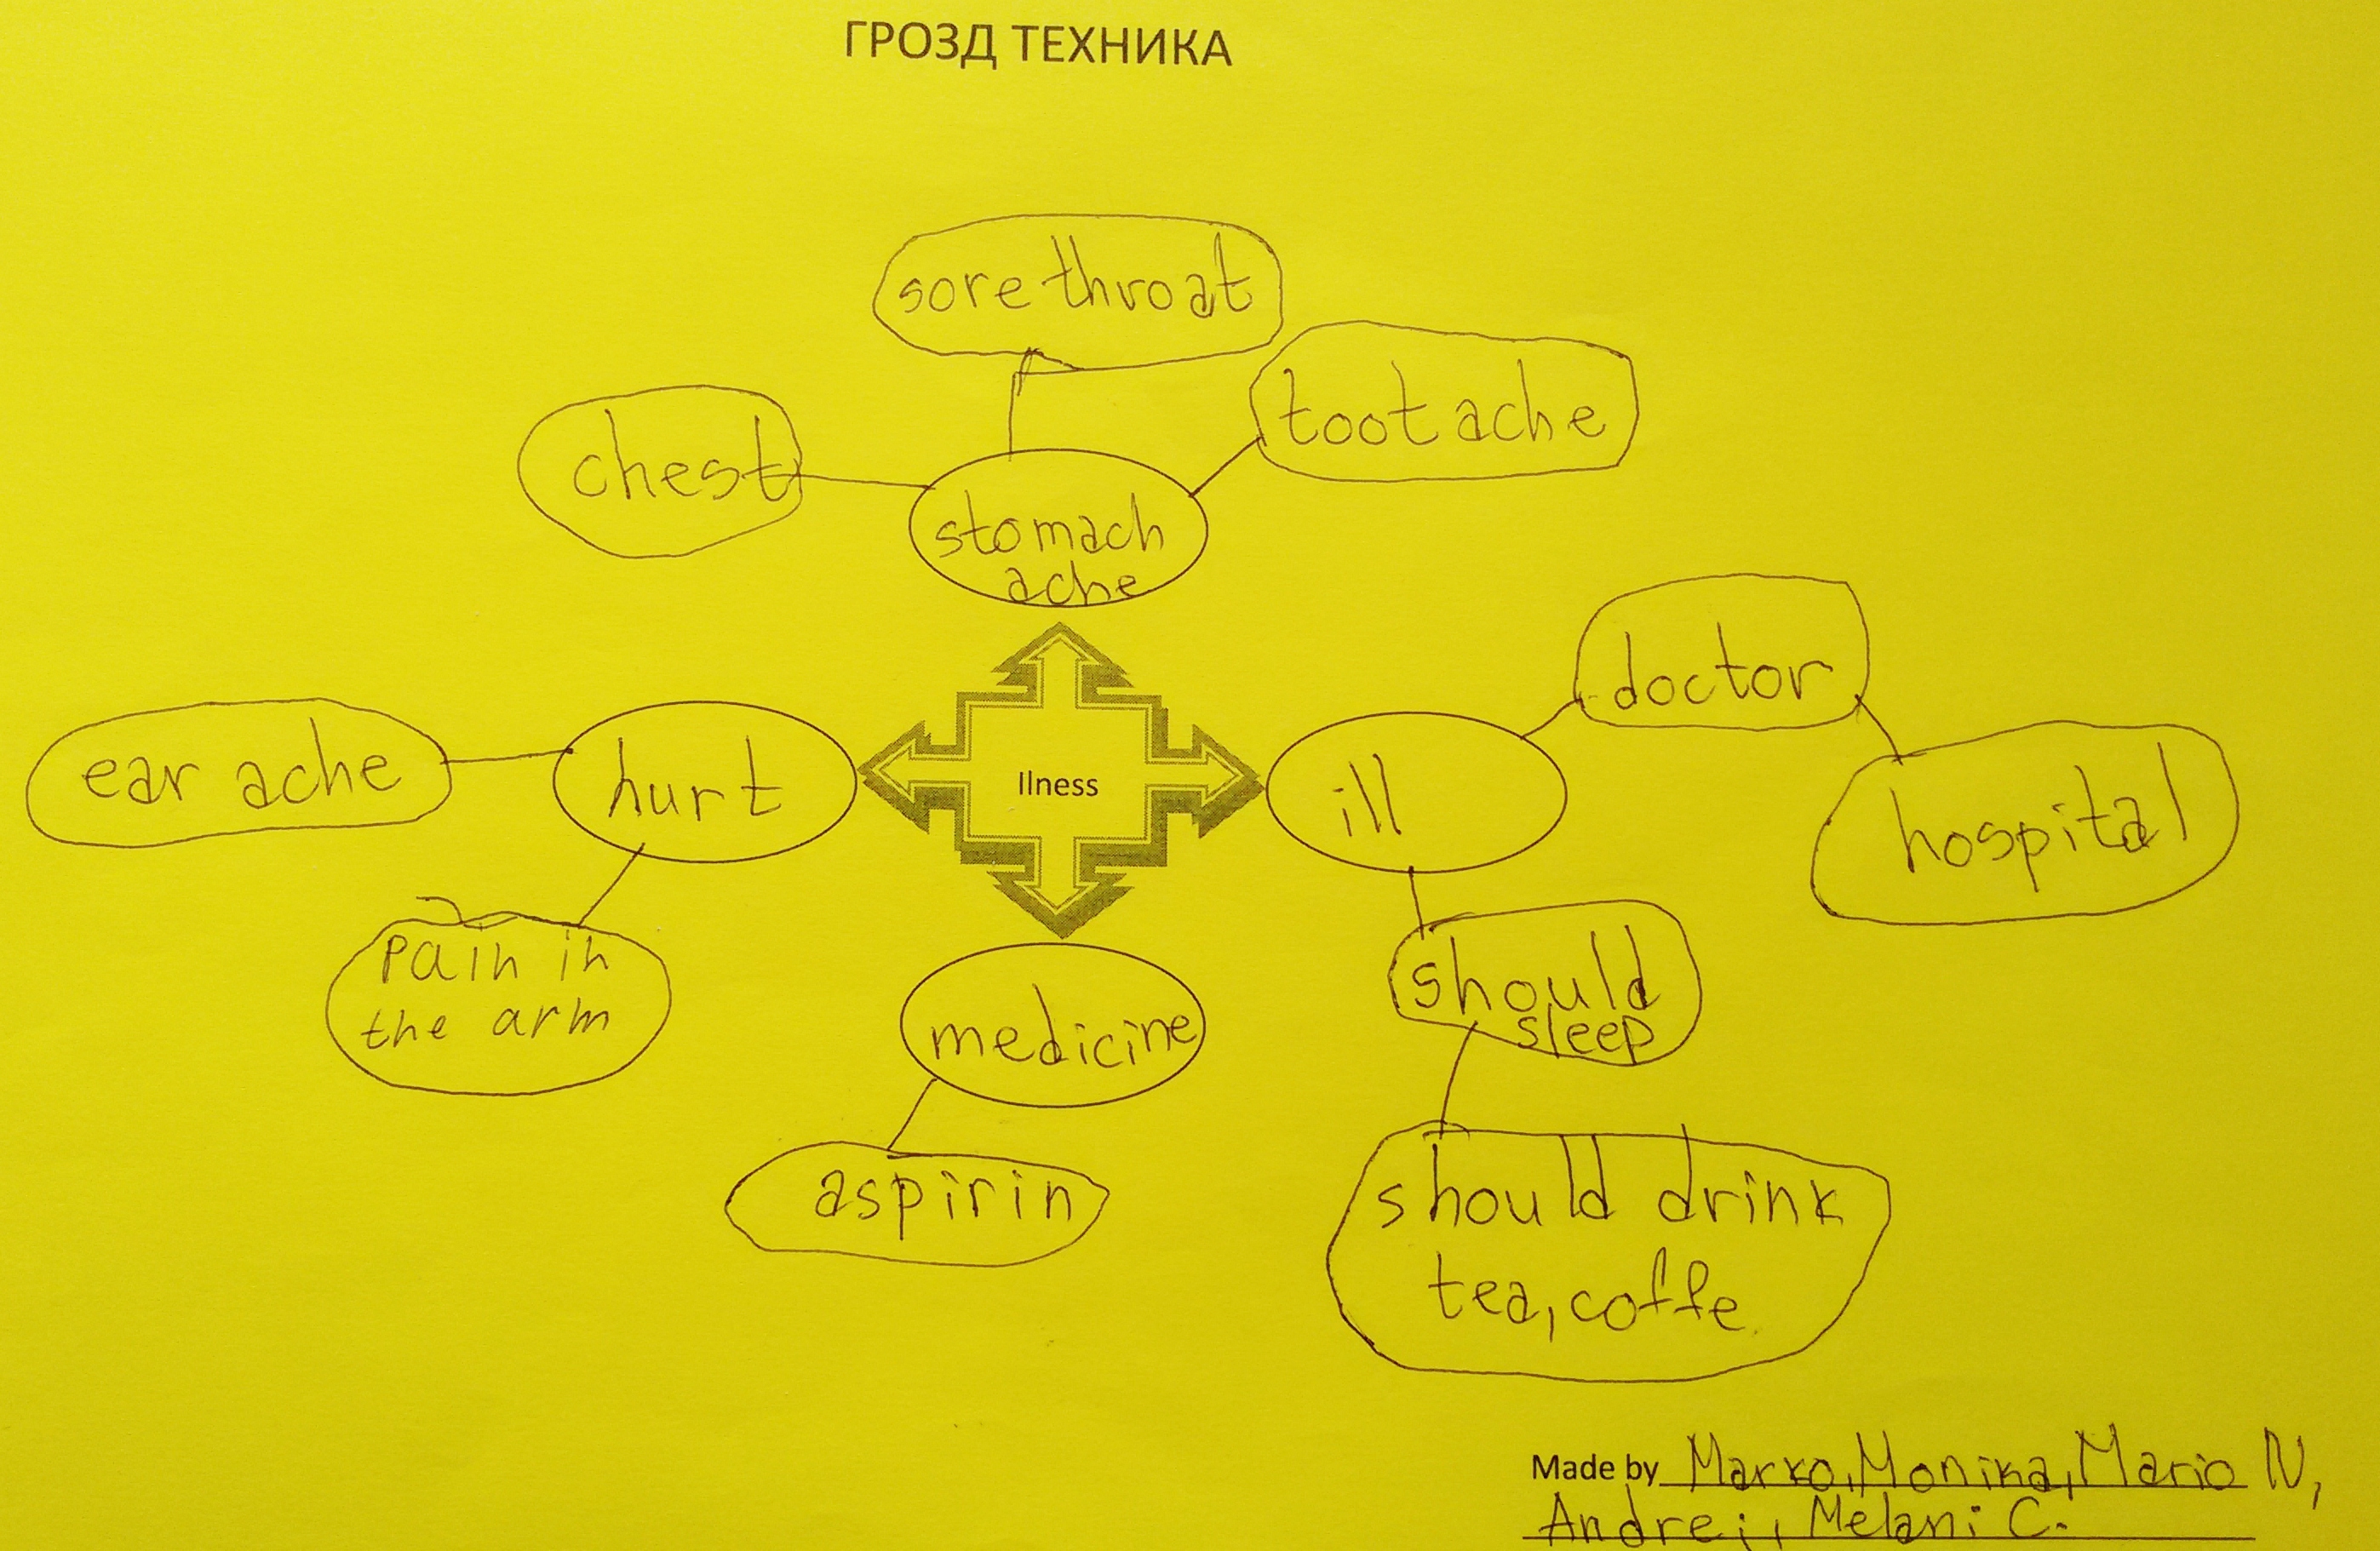 ГРОЗД ТЕХНИКА
sore throat
toot ache
chest
stomach
ache
doctor
ear ache
hurt
Ilness
ill
hospital
pain in
the arm
medicine
should
sleep
aspirin
should drink
tea, coffe
Made by Marko, Monika, Mario N,
Andrej, Melani C.